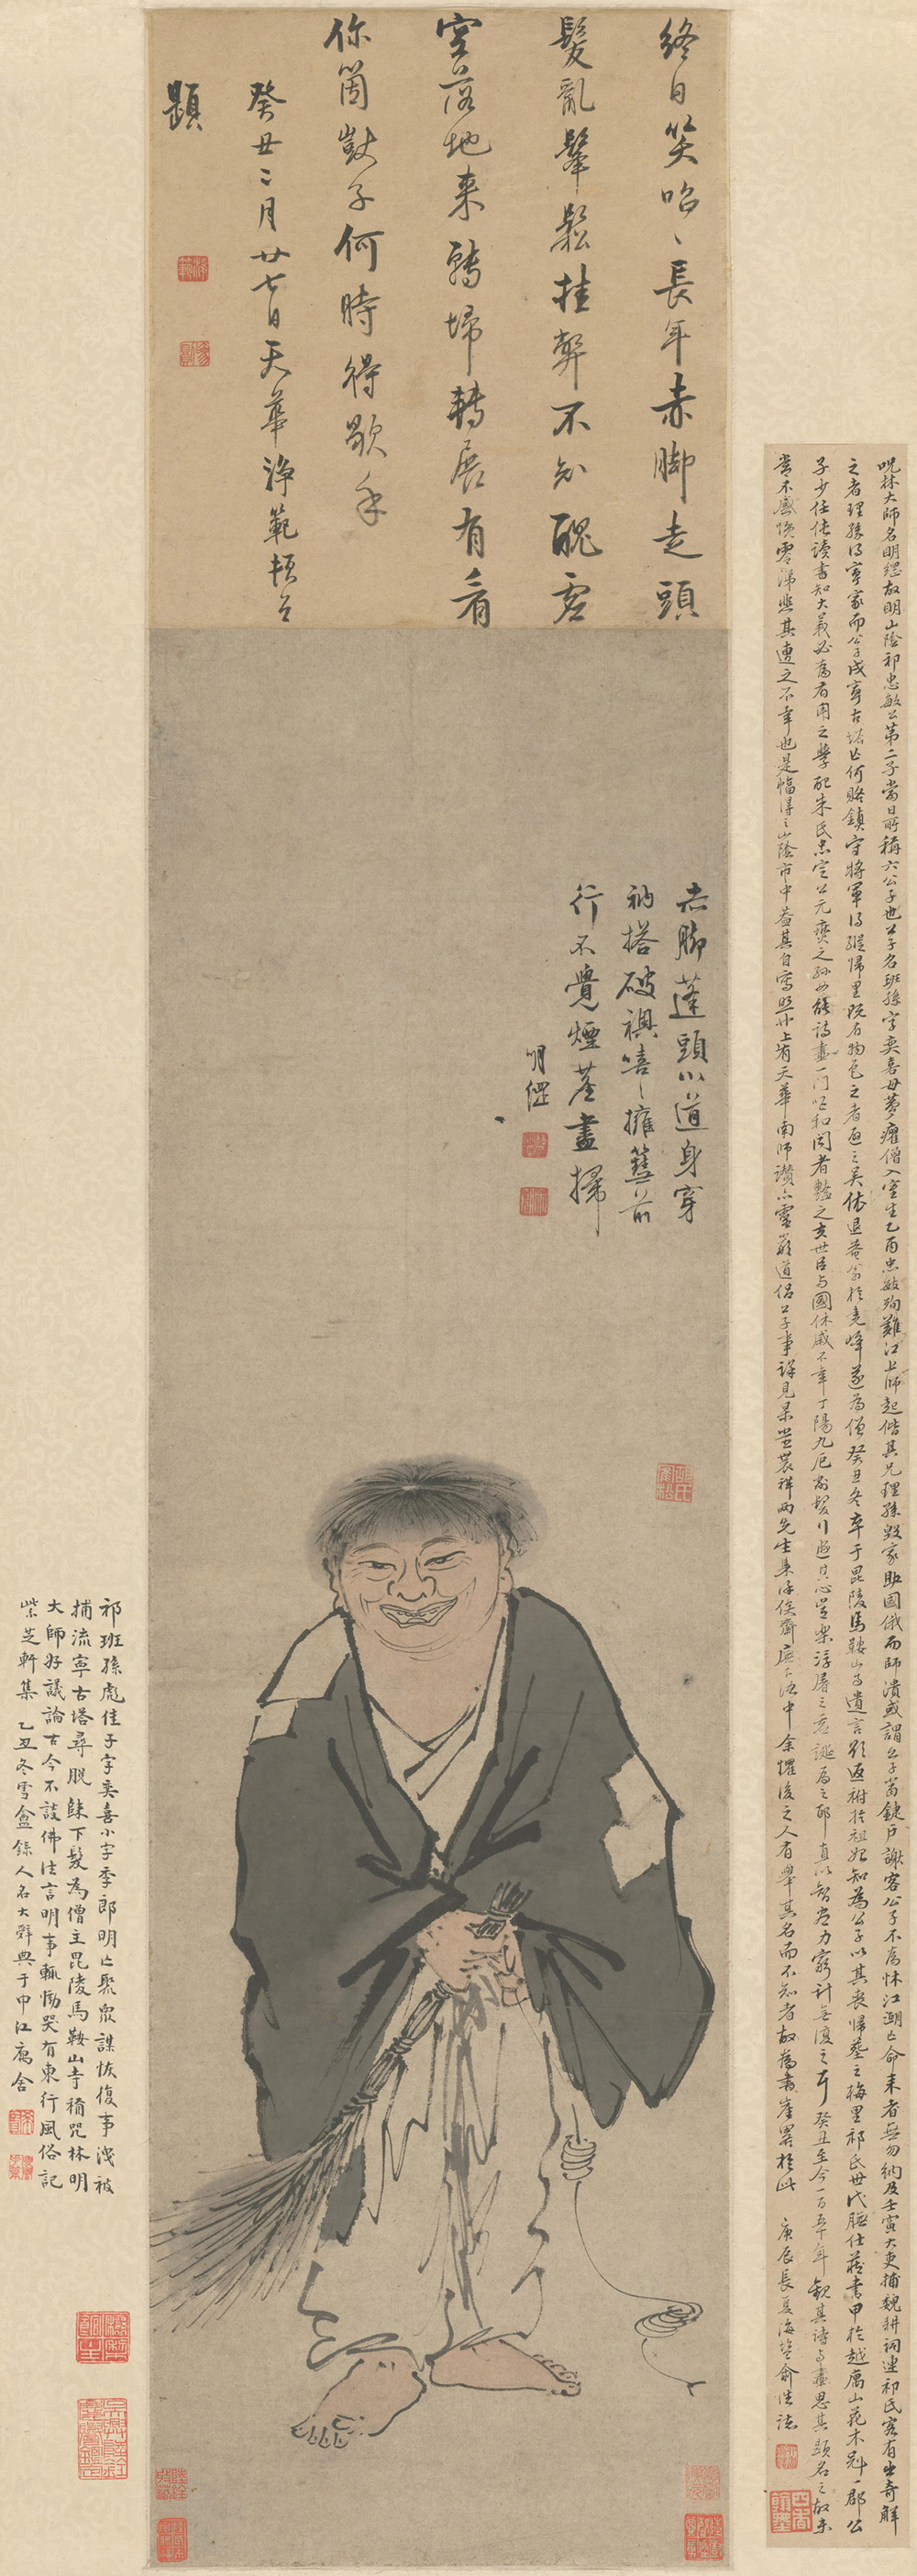 終日笑咍〻長年赤脚走頭
髮亂鬔鬆挂弊不知醜虗
空落地来驀埽轉展有看
你箇獃子何時得歇手
癸丑二月廿七日天華淨範拈筆
題
赤脚蓬頭小道身穿
衲搭破襖嘻〻擁篲前
行不覺煙塵盡掃
明偲
呪林大師名明偲故明山陰祁忠敏公第二子當日所稱六公子也公子名班孫字奕喜母夢癯僧入室生乙酉忠敏殉難江上師起偕其兄理孫毀家助國俄而師潰或謂公子當鍵戶謝客公子不為怵江湖亡命来者無勿納及壬寅大吏捕魏耕詞連祁氏客有出奇解
之者理孫得寧家而公子戍寧古塔亡何賂鎮守將軍得縱歸里既有物色之者遁之吳依退菴翁於堯峰遂為僧癸丑冬卒于毘陵馬鞍山寺遺言欲返祔於祖妣知為公子以其喪歸葬之梅里祁氏世代膴仕藏書甲於越寓山花木冠一郡公
子少任俠讀書知大義必為有用之學配朱氏忠定公元燮之孫女能詩畫一門唱和聞者豔之夫世臣與國休戚不幸丁陽九厄剃髮行遯其心豈樂浮屠之虛誕為之耶直以智盡力窮計無復之耳癸丑至今一百五十年觀其詩與畫思其題名之故未
嘗不感愴零涕悲其遭之不幸也是幅得之山陰市中蓋其自寫照也上有天華南師讚亦靈巖道侶公子事詳見杲堂農祥兩先生集余懼後之人有舉其名而不知者故為書崖畧於此 庚辰長夏海鹽俞浩誌
祁班孫彪佳子字奕喜小字季郎明亡聚眾謀恢復事洩被
捕流寧古塔尋脫歸下髮為僧主毘陵馬鞍山寺稱呪林明
大師好議論古今不談佛法言明事輒慟哭有東行風俗記
紫芝軒集 乙丑冬雪盦錄人名大辭典于申江寓舍